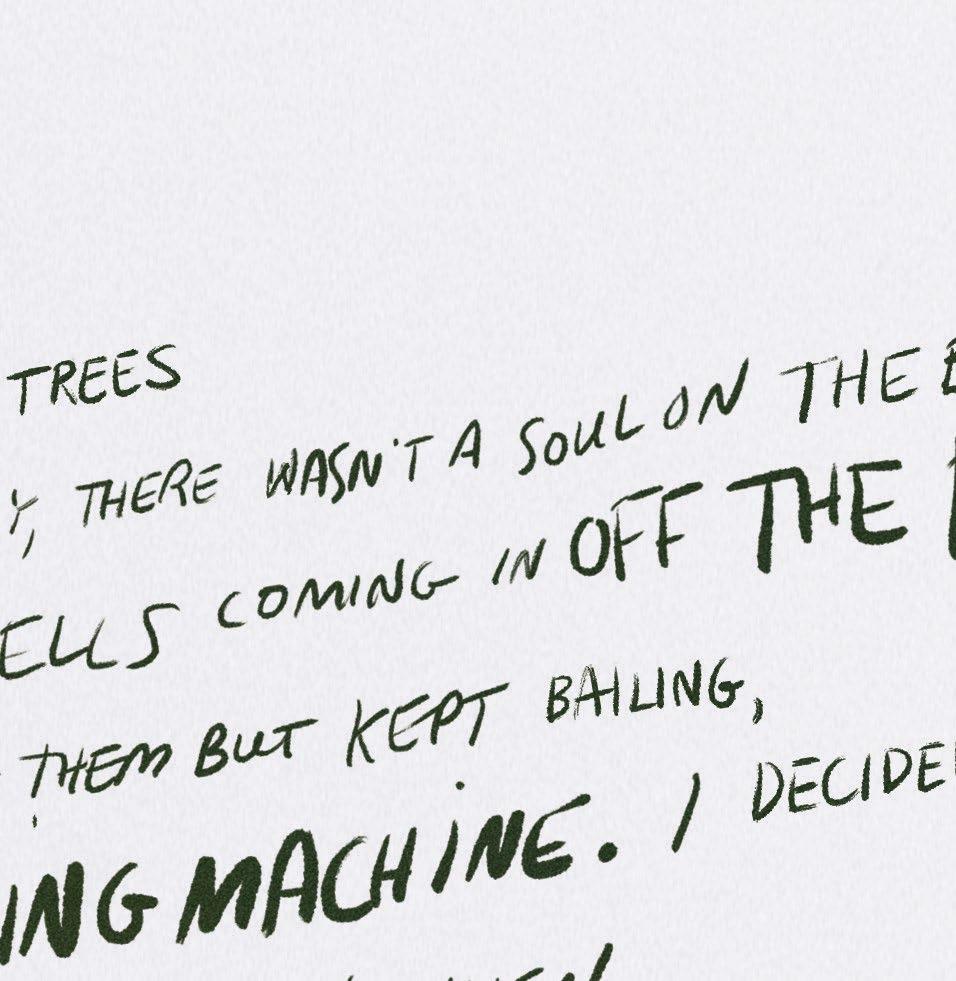 TREES
THERE WASN'T A SOUL ON THE
COMING IN OFF THE
THEM BUT KEPT BAILING,
MACHINE. I